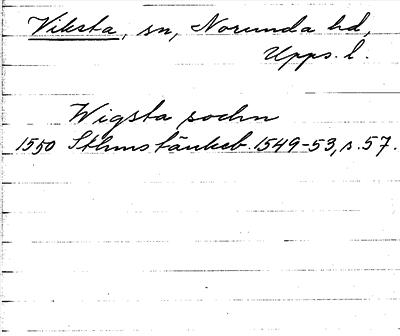 Viksta, sn, Norunda hd,
Upps. l.
Wigsta sochn
1550 Sthmstänkeb. 1549-53, s. 57.